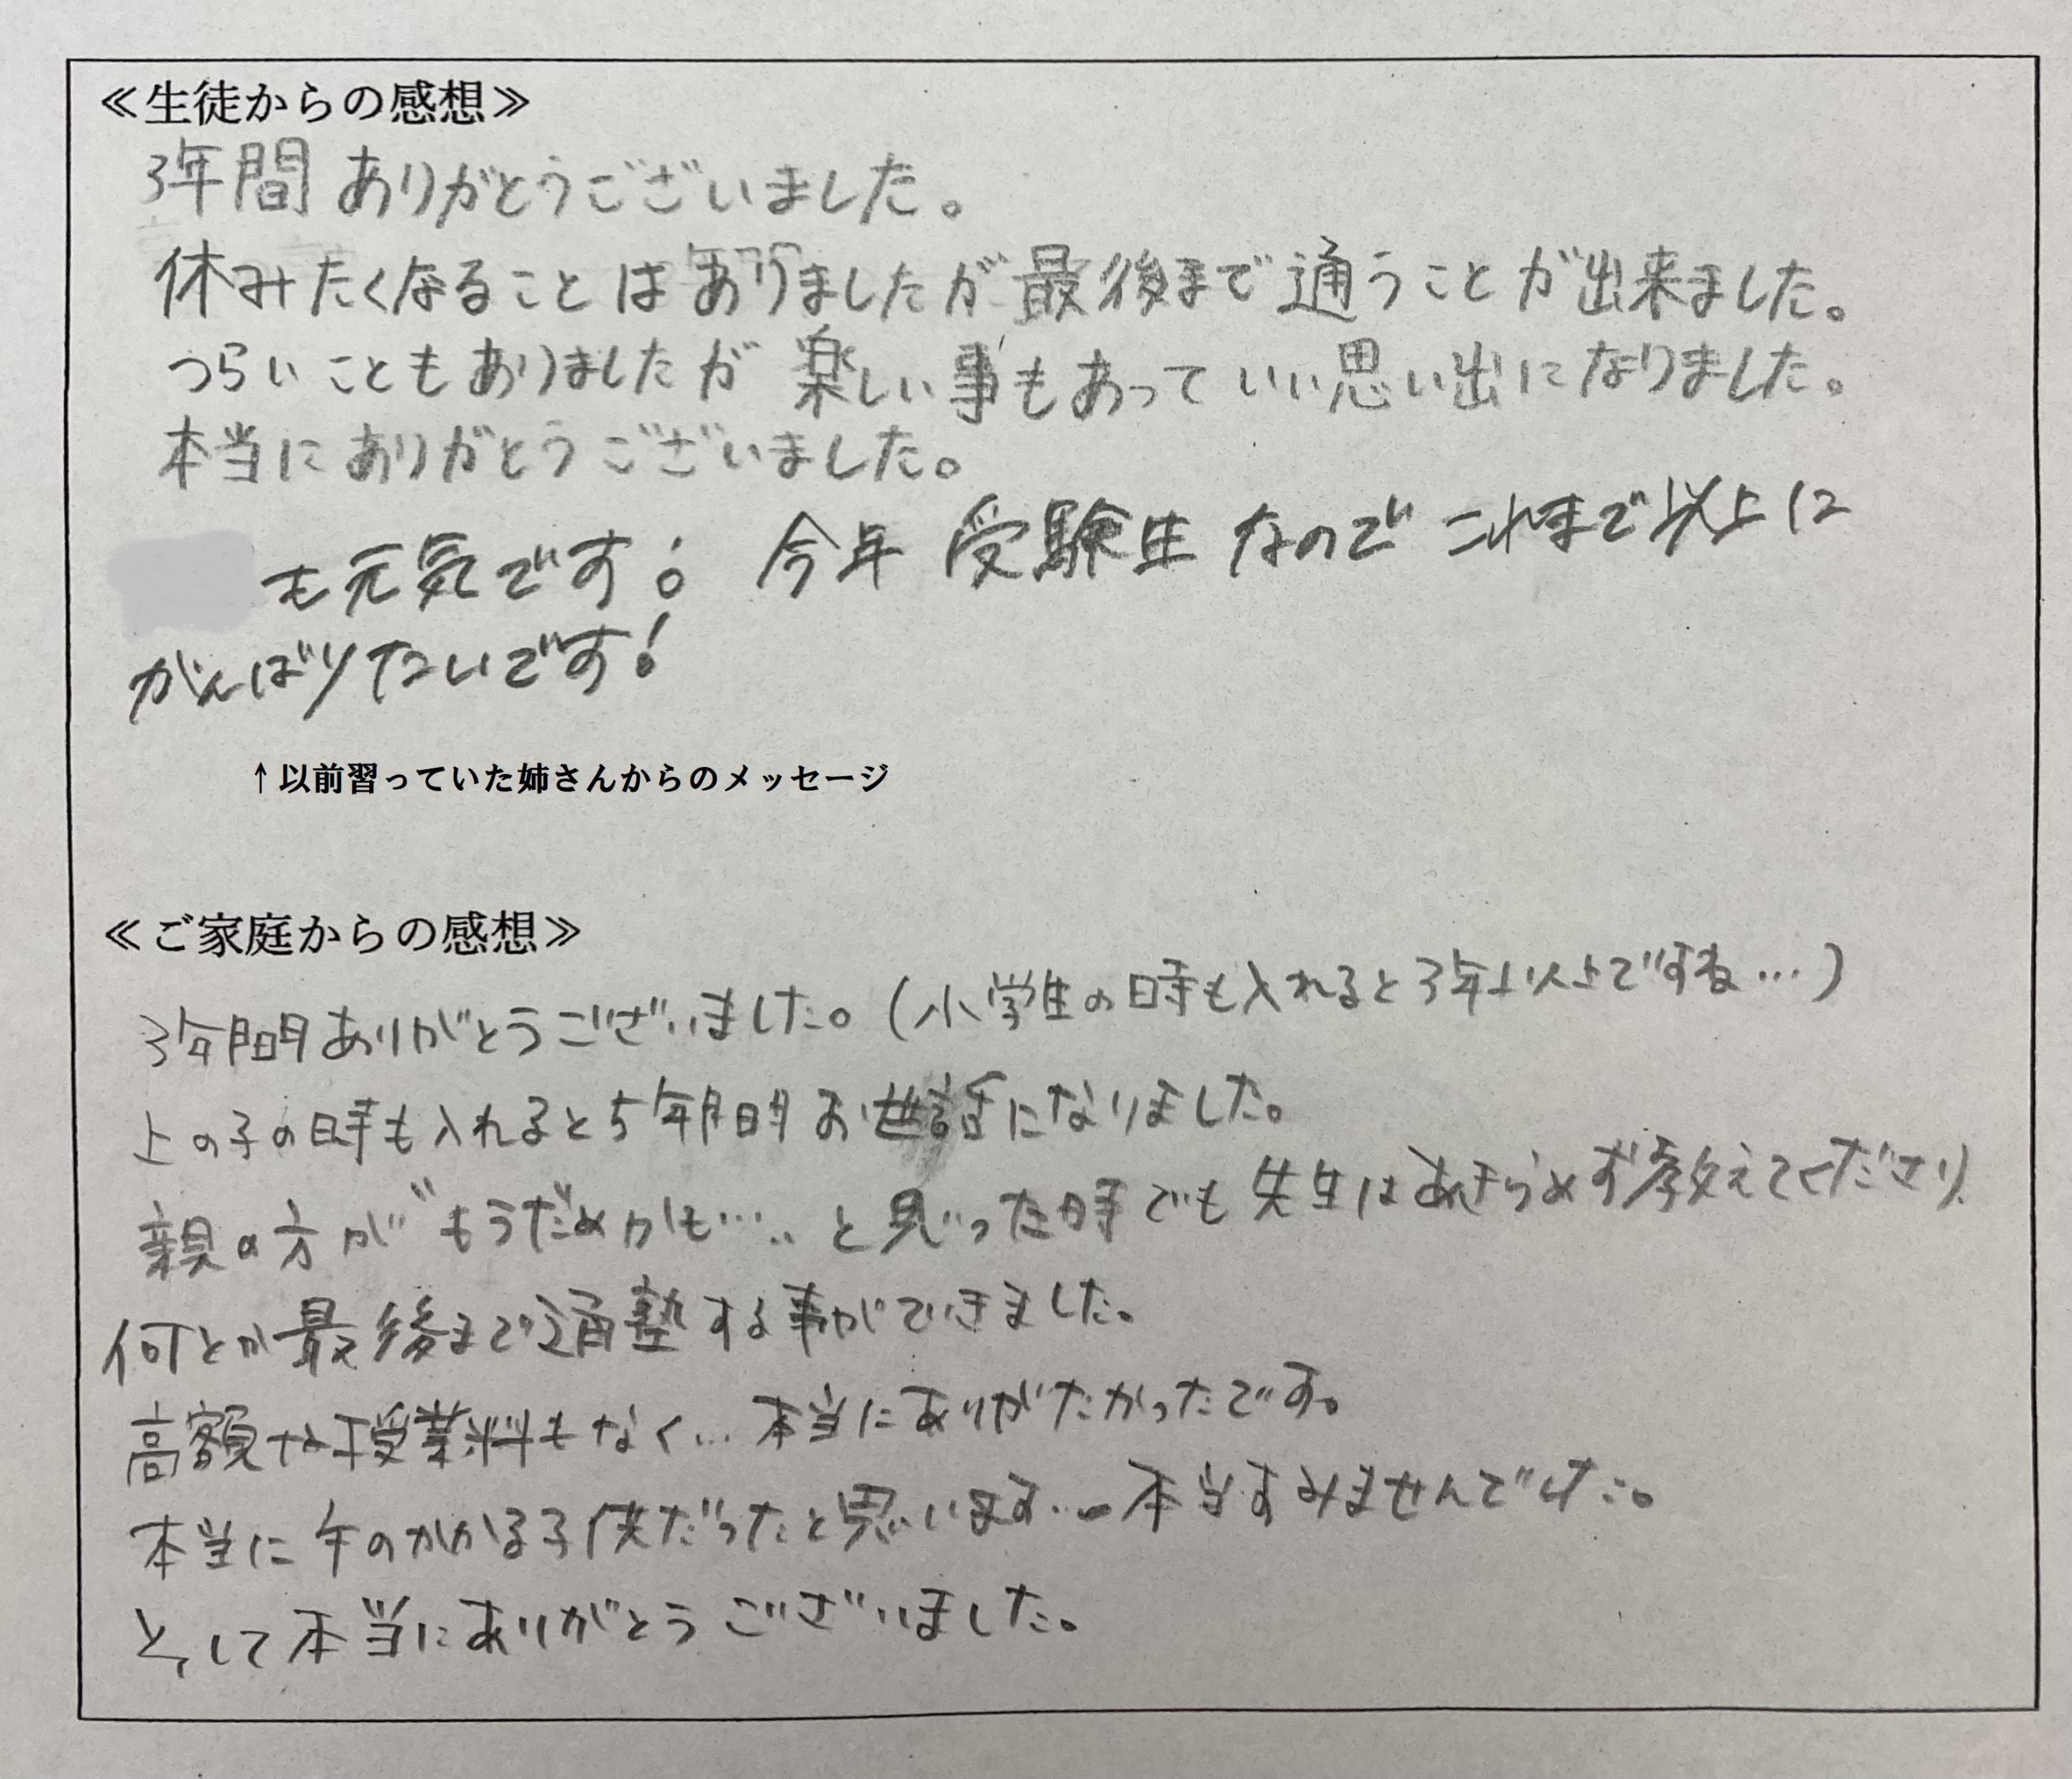 ≪生徒からの感想≫
3年間 ありがとうございました。
休みたくなることはありましたが最後まで通うことが出来ました。
つらいこともありましたが楽しい事もあっていい思い出になりました。
本当にありがとうございました。
も元気です! 今年 受験生 なので これまで以上に
がんばりたいです!
↑以前習っていた姉さんからのメッセージ
≪ご家庭からの感想≫
3年間ありがとうございました。(小学生の時も入れると3年以上ですね…)
上の子の時も入れると5年間お世話になりました。
親の方が"もうだめかも…..と思った時でも先生はあきらめず教えてくださり、
何とか最後まで通塾する事ができました。
高額な授業料もなく…本当にありがたかったです。
本当に手のかかる子供だったと思います…本当すみませんでした。
そして本当にありがとうございました。